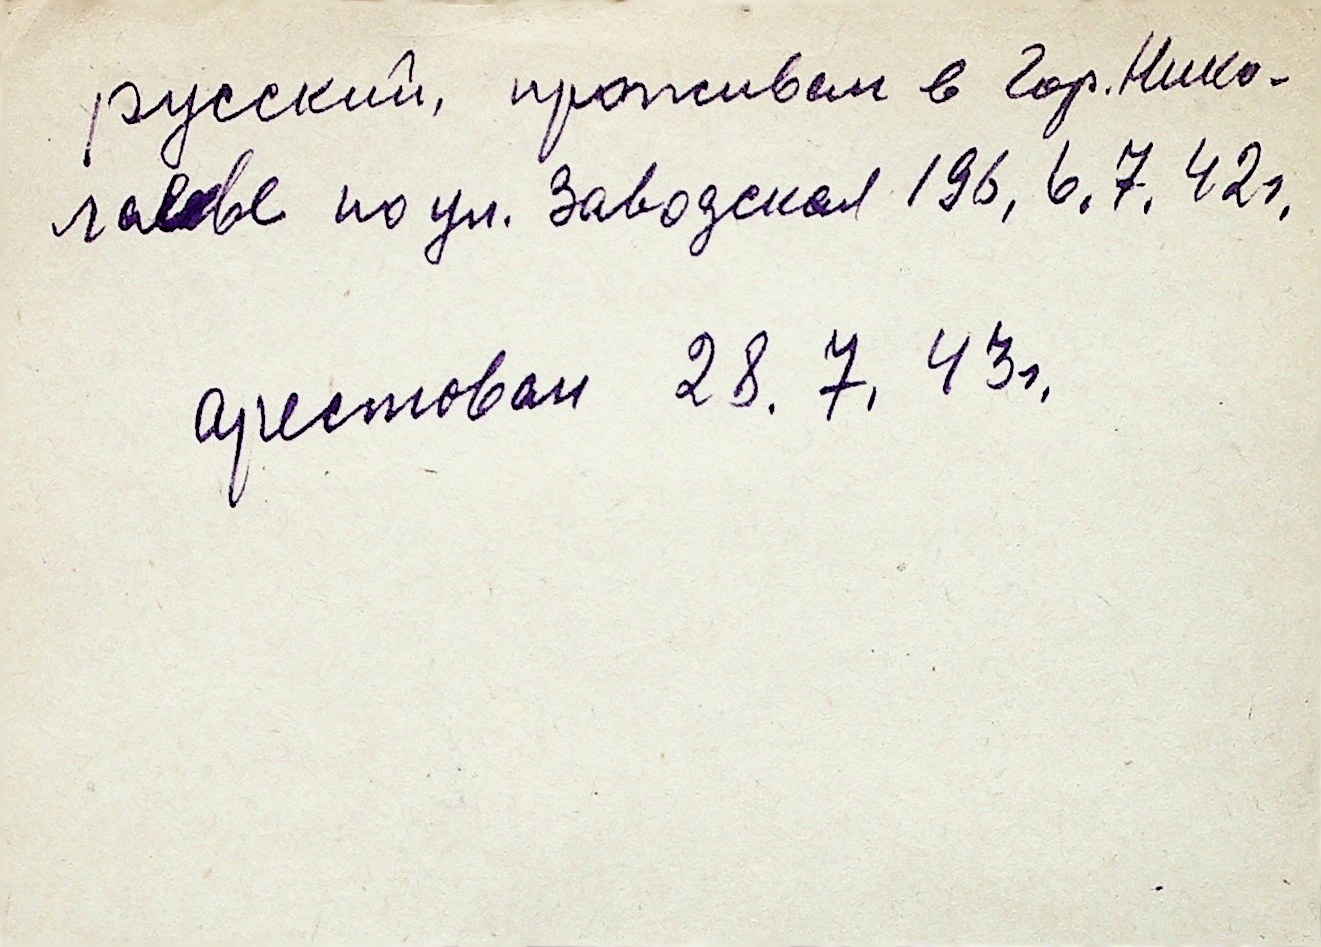 русский, проживал в гор. Нико-
лаеве по ул. Заводская 196, 6.7.42г.
арестован 28.7.43г.